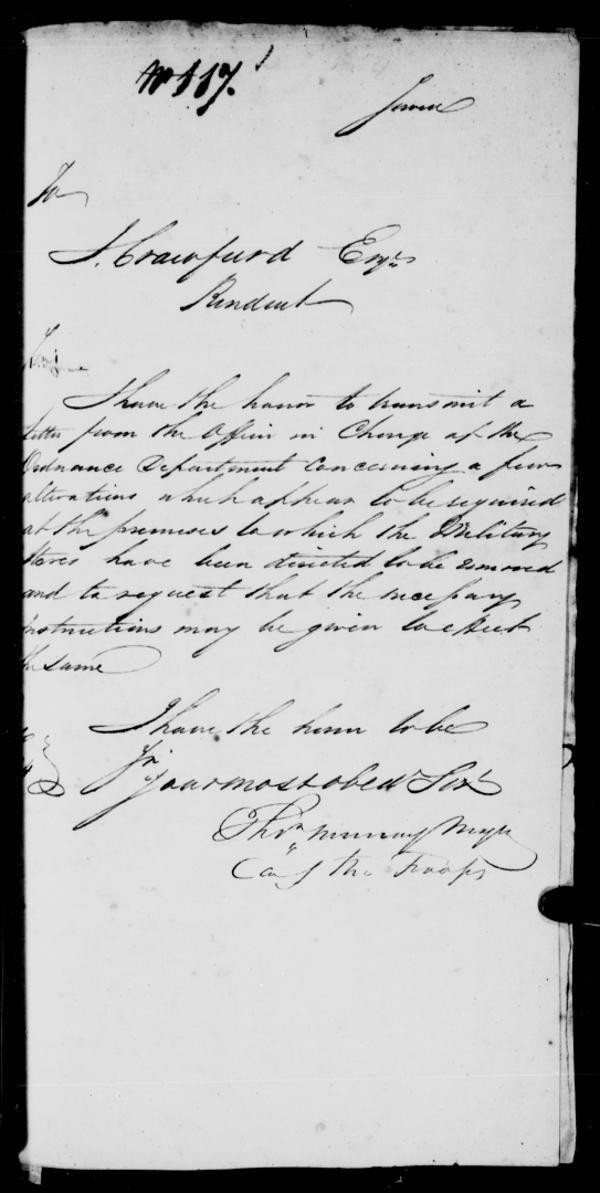 No 117.
To
J. Crawfurd Esqr
Resident
I have the honor to transmit a
letter from the Officer in Charge of the
Ordnance Department concerning a few
alterations which appear to be required
at the premises to which the Military
Stores have been directed to be removed
and to request that the necessary
instructions may be given to effect
the same
I have the honor to be
Sir
Your most obedt Servt
Thos Murray Major
Comg the Troops